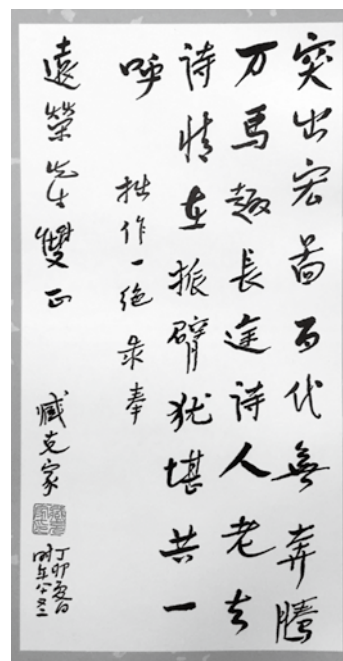 突出宏图百代無奔腾
万馬趣長途诗人老去
诗情在振臂犹堪共一
呼
拙作一绝录奉
遠榮先生雙正
臧克家
丁卯夏日
时年八十三